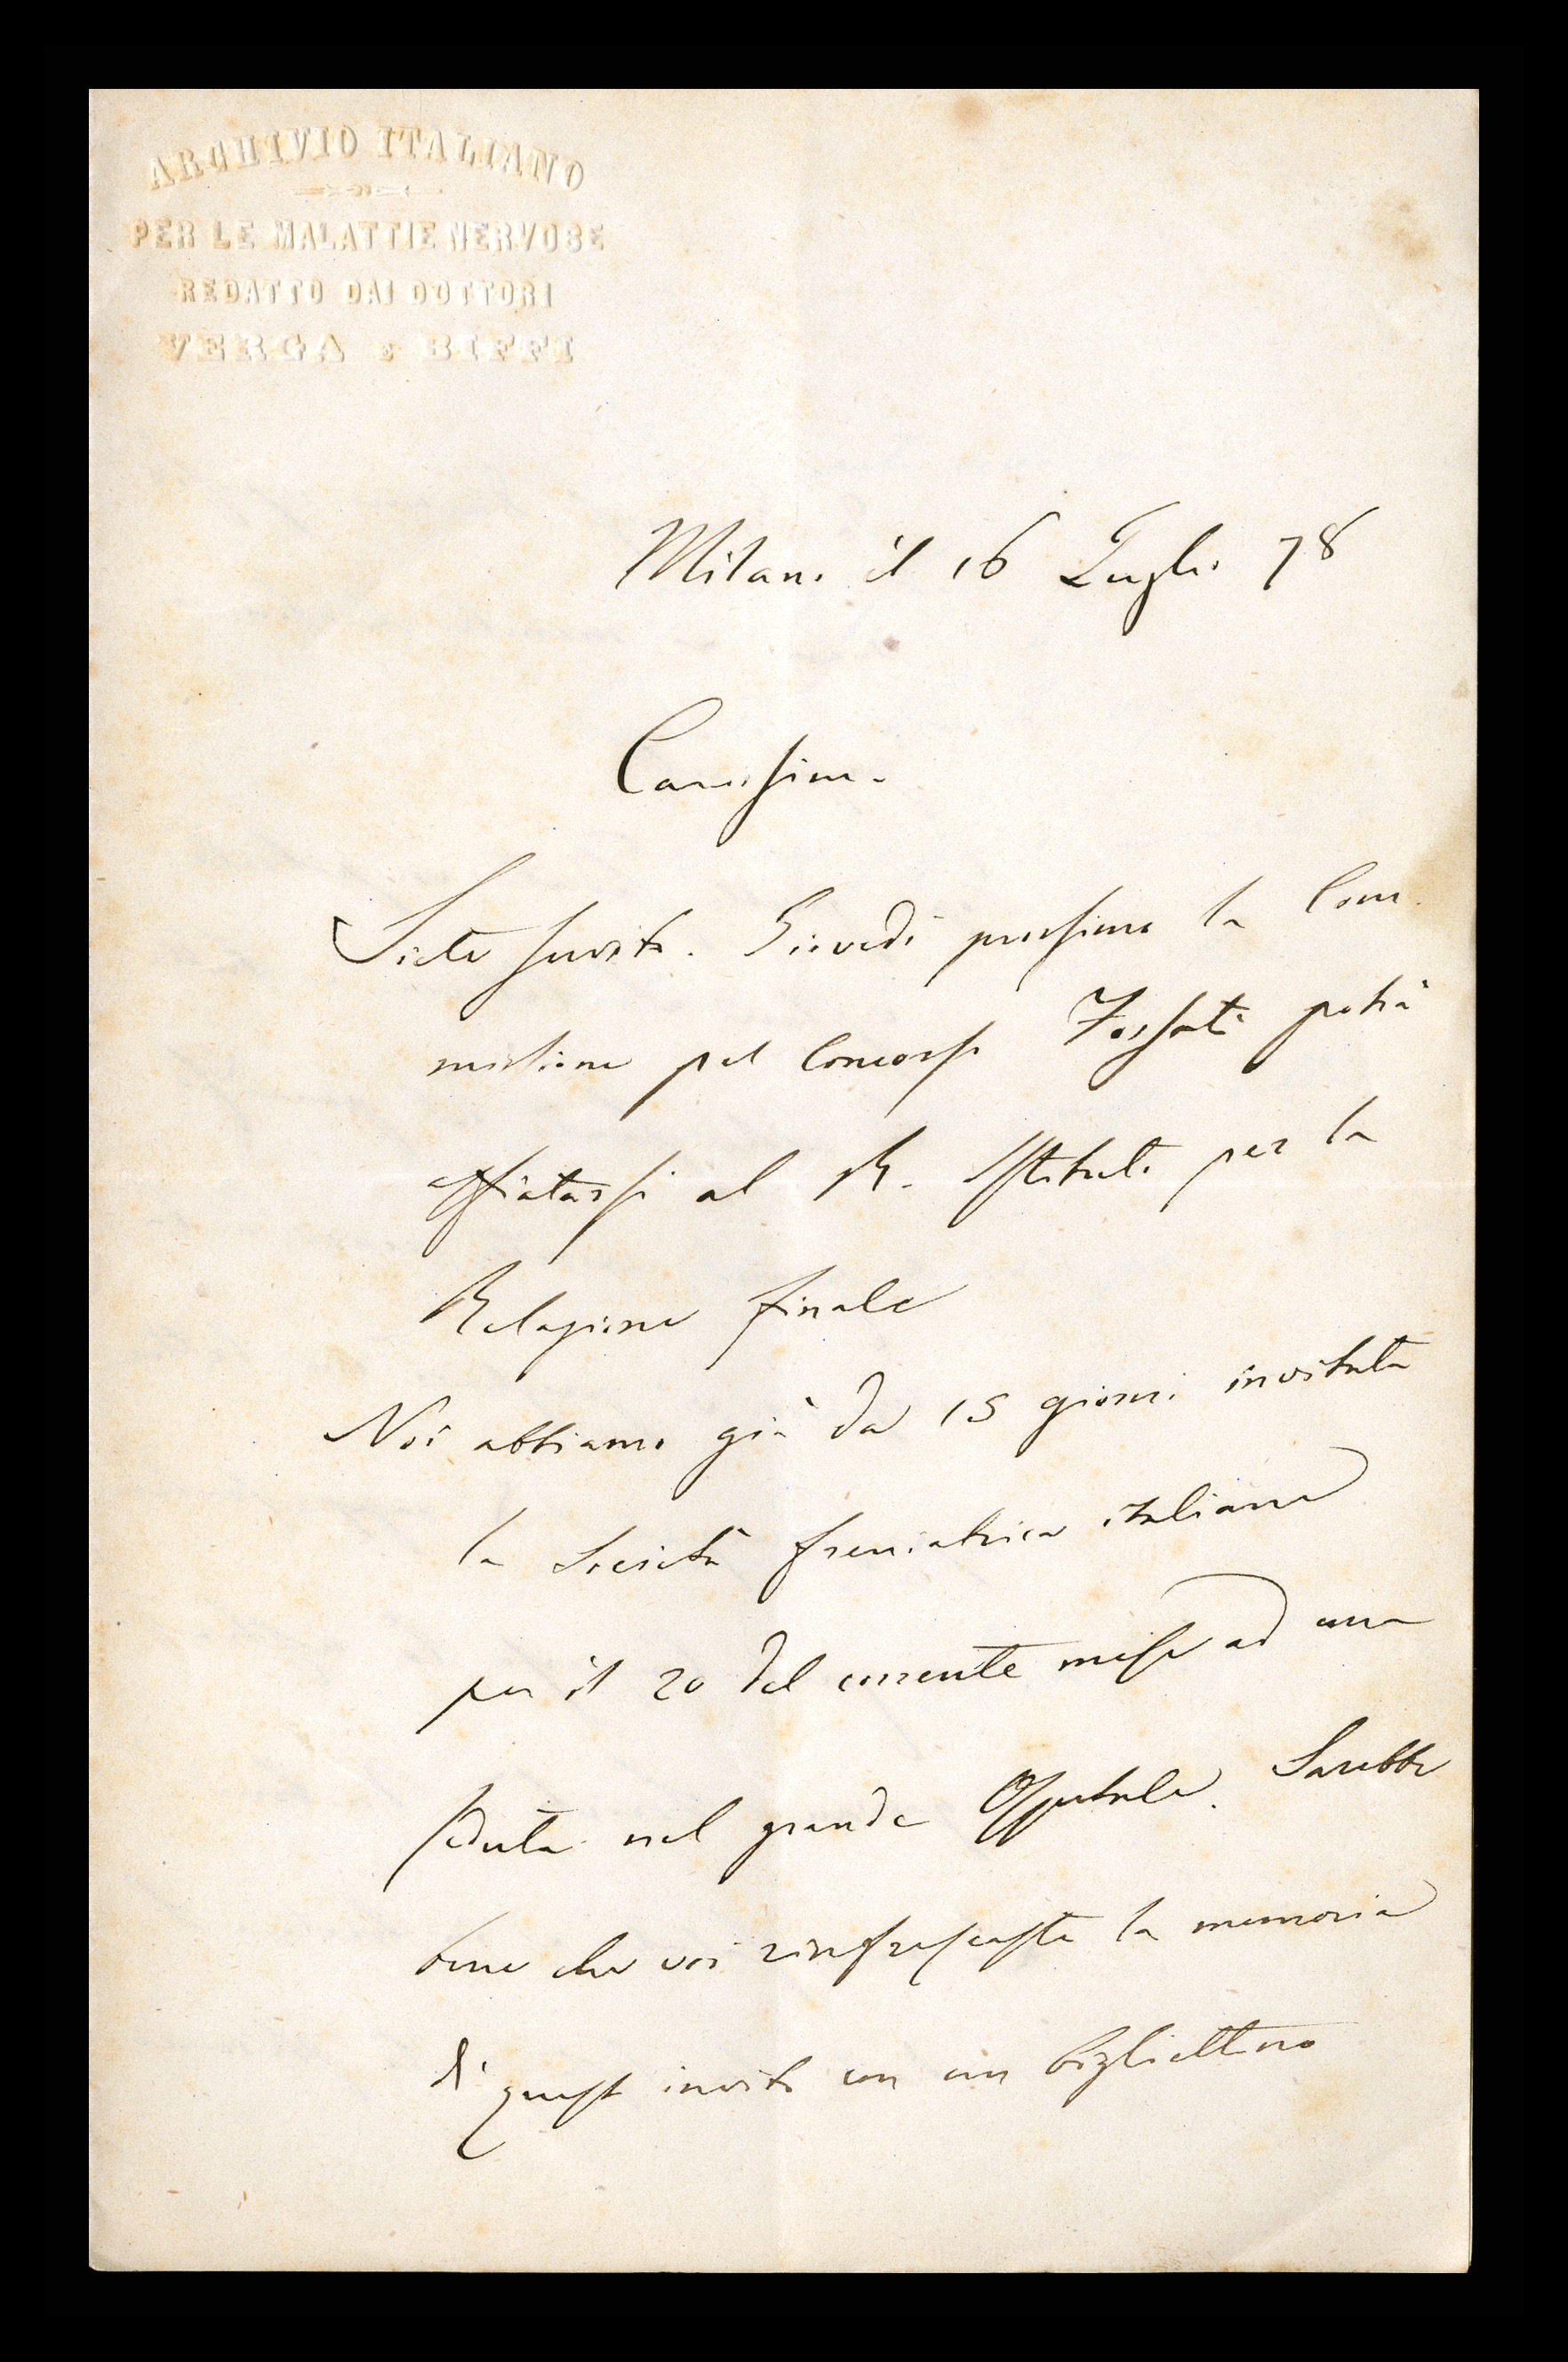 ARCHIVIO ITALIANO
PER LE MALATTIE NERVOSE
REDATTO DAI DOTTORI
VERGA E BIFFI
Milano il 16 Luglio 78
Carissimo
Siete servito. Giovedì prossimo la Com.
missione pel Concorso Fossati potrà
affiatarsi al R. Istituto per la
Relazione finale
Noi abbiamo già da 15 giorni invitata
la Società freniatrica italiana
per il 20 del corrente mese ad una
seduta nel grande Ospitale. Sarebbe
bene che voi rinfrescaste la memoria
di questo invito con un bigliettino